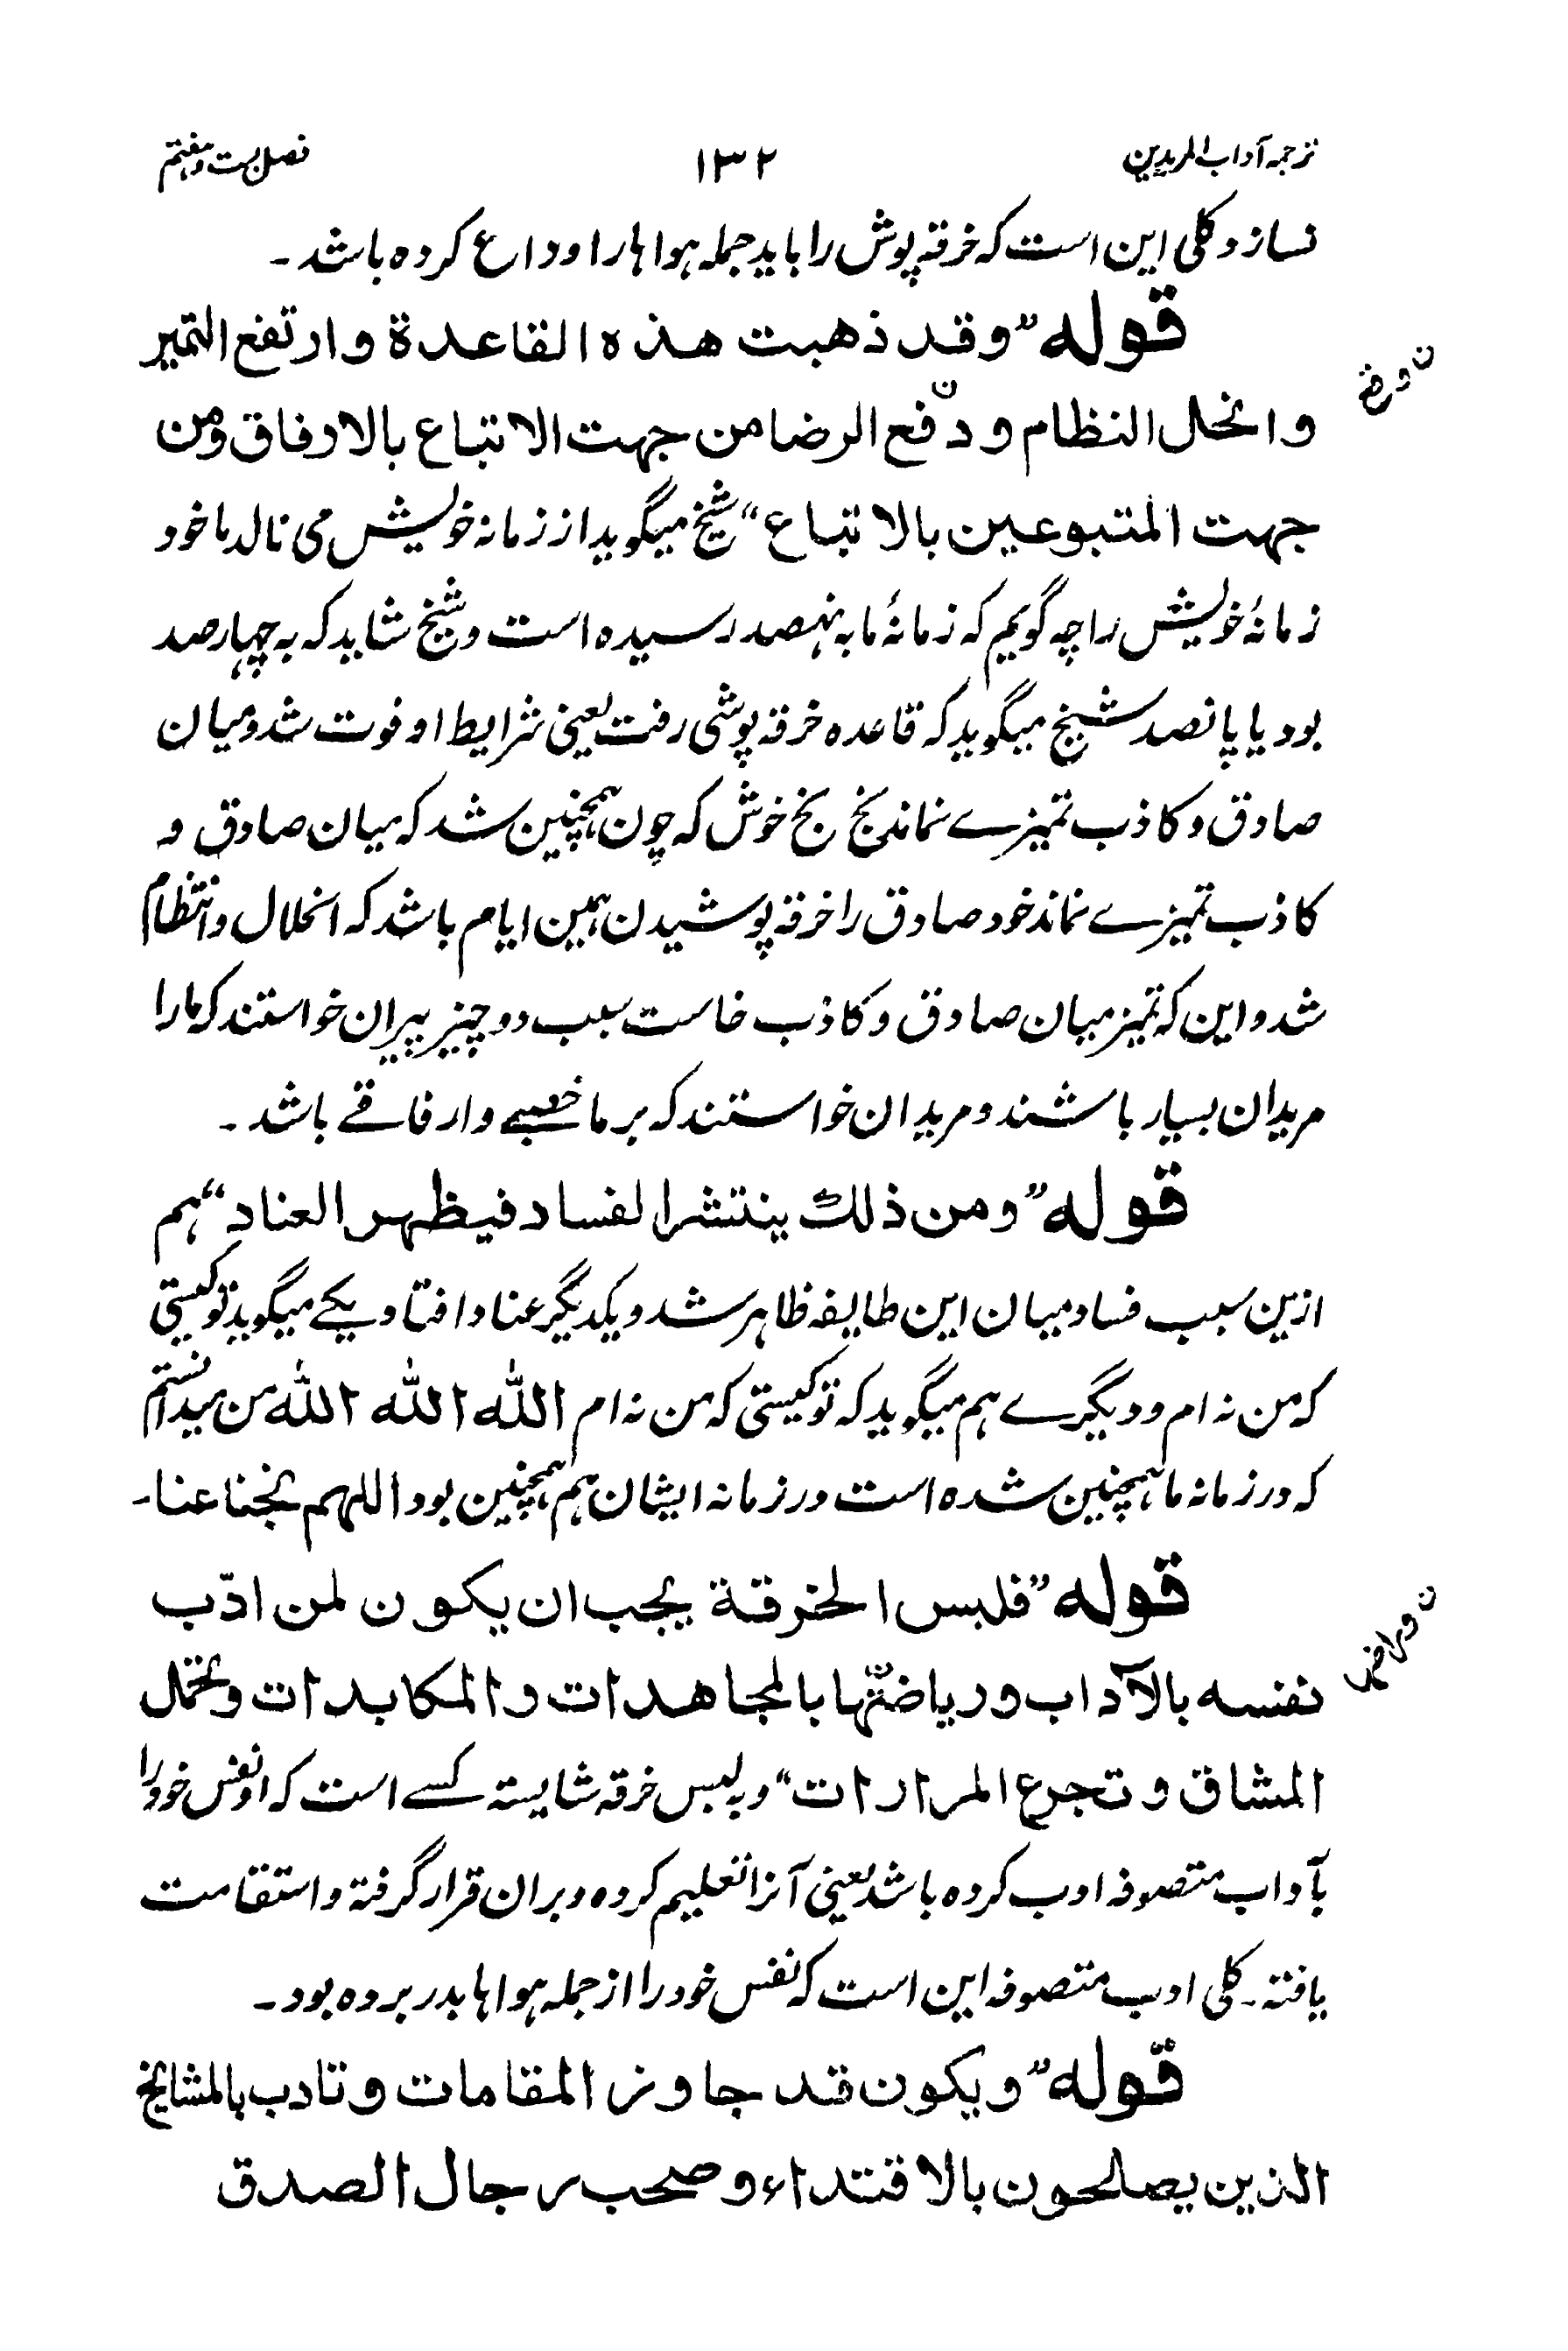 ترجمہ آداب المریدین ۱۳۲ فصل بست و ہفتم
نسازد کلی این است کہ خرقہ پوش را باید جملہ ہوا ہا را وداع کردہ باشد۔
قوله ”وقد ذهبت هذه القاعدة وارتفع التميز
وانحل النظام و دفع الرضا من جهت الاتباع بالارفاق ومن
ن و رفع
جهت المتبوعين بالاتباع“ شیخ میگوید از زمانہ خویش می نالد ما خود
زمانۂ خویش را چہ گویم کہ زمانۂ ما بہ نہصد رسیدہ است و شیخ شاید کہ بہ چہار صد
بود یا پانصد شیخ میگوید کہ قاعدہ خرقہ پوشی رفت یعنی شرایط او فوت شد و میان
صادق و کاذب تمیزے نماند بخ بخ خوش کہ چون ہمچنین شد کہ میان صادق و
کاذب تمیزے نماند خود صادق را خرقہ پوشیدن ہمین ایام باشد کہ انحلال و انتظام
شد و این کہ تمیز میان صادق و کاذب خاست سبب دو چیز پیران خواستند کہ ما را
مریدان بسیار باشند و مریدان خواستند کہ بر ما وارفاقے باشد۔
قوله ”ومن ذلك ينتشر الفساد فيظهر العناد“ ہم
ازین سبب فساد میان این طایفہ ظاہر شد و یکدیگر عناد افتاد یکے میگوید تو کیستی
کہ من نہ ام و دیگرے ہم میگوید کہ تو کیستی کہ من نہ ام اللہ اللہ اللہ من میدانستم
کہ در زمانہ ما ہمچنین شدہ است در زمانہ ایشان ہم ہمچنین بود اللهم نجنا عنا۔
قوله ”فلبس الخرقة يجب ان يكون لمن ادّب
نفسه بالآداب ورياضتها بالمجاهدات والمكابدات وتحمل
المشاق و تجرع المرارات“ و بہ لبس خرقہ شایستہ کسے است کہ او نفس خود را
بآداب متصوفہ ادب کردہ باشد یعنی آنرا تعلیم کردہ و بران قرار گرفتہ و استقامت
یافتہ۔ کلی ادب متصوفہ این است کہ نفس خود را از جملہ ہوا ہا بدر بردہ بود۔
قوله ”ويكون قد جاوز المقامات وتادب بالمشايخ
الذين يصلحون بالاقتداء وصحب رجال الصدق